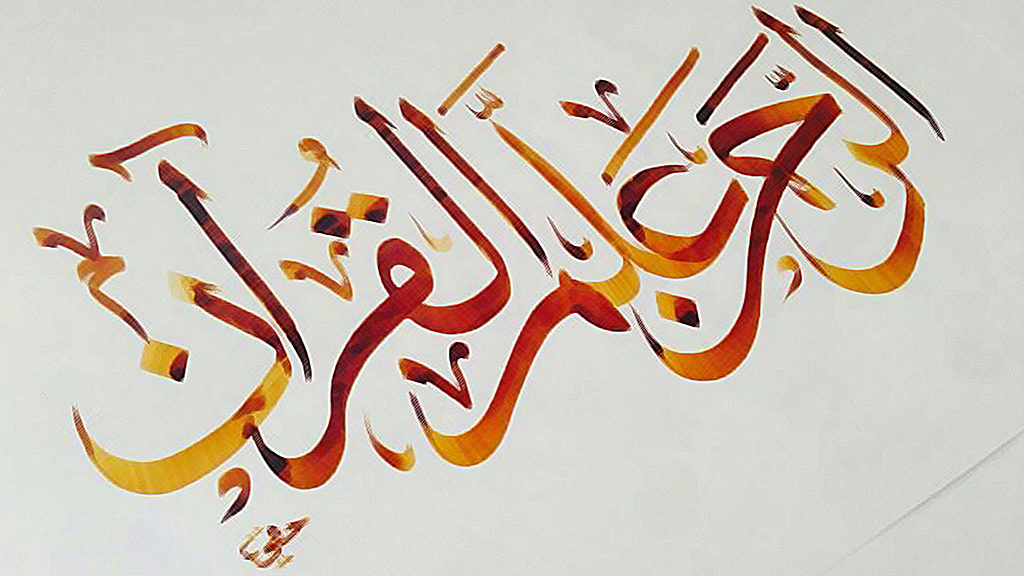 الرحمن علم القرآن